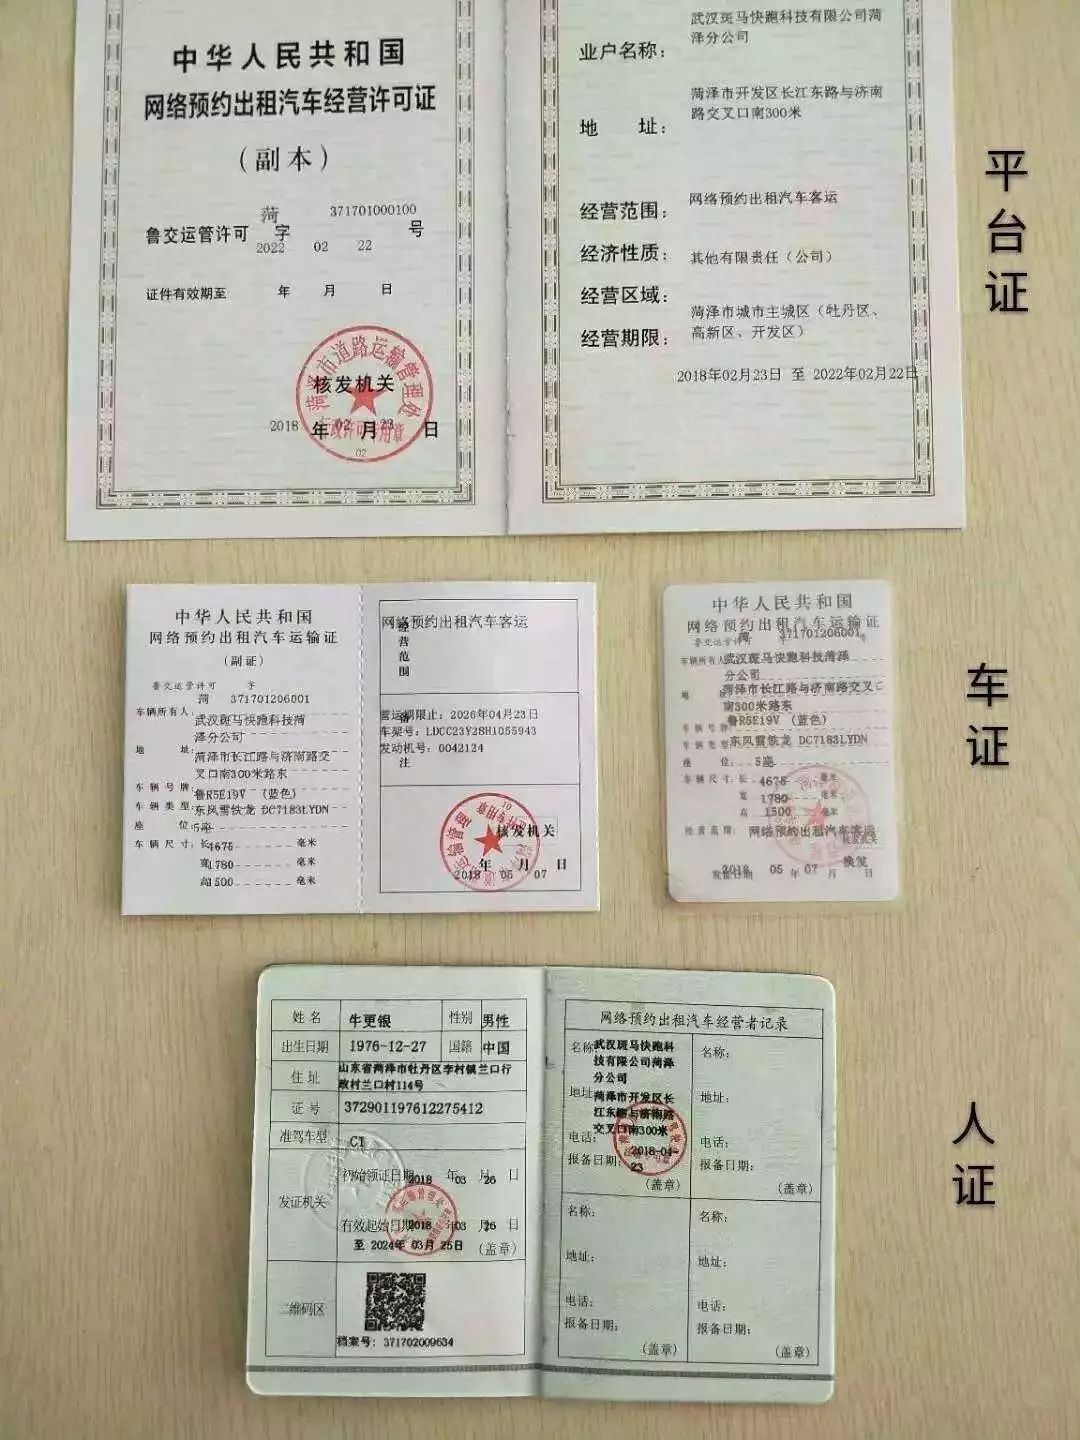 中华人民共和国
网络预约出租汽车经营许可证
(副本)
鲁交运管许可 菏 字 371701000100 号
2022 02 22
证件有效期至 年 月 日
菏泽市道路运输管理处
核发机关
2018 年 02 月 23 日
行政许可专用章
02
业户名称：
武汉斑马快跑科技有限公司菏
泽分公司
地 址：
菏泽市开发区长江东路与济南
路交叉口南300米
经营范围：
网络预约出租汽车客运
经济性质：
其他有限责任（公司）
经营区域：
菏泽市城市主城区（牡丹区、
高新区、开发区）
经营期限：
2018年02月23日 至 2022年02月22日
平台证
中华人民共和国
网络预约出租汽车运输证
(副证)
鲁交运管许可 字
菏 371701206001
车辆所有人：
武汉斑马快跑科技菏
泽分公司
地 址：
菏泽市长江路与济南路交
叉口南300米路东
车辆号牌：
鲁R5E19V （蓝色）
车辆类型：东风雪铁龙 DC7183LYDN
座 位：5座
车辆尺寸：长4675 毫米
宽1780 毫米
高1500 毫米
网络预约出租汽车客运
经营范围
营运期限止：2026年04月23日
车架号：LDCC23Y28H1055943
发动机号：0042124
备注
核发机关
年 月 日
2018 05 07
中华人民共和国
网络预约出租汽车运输证
菏 371701206001
鲁交运管许可 字 号
车辆所有人 武汉斑马快跑科技菏泽
分公司
地 菏泽市长江路与济南路交叉口
南300米路东
车辆号牌 鲁R5E19V （蓝色）
车辆类型 东风雪铁龙 DC7183LYDN
座 位：5座
车辆尺寸：长 4675 毫米
宽 1780 毫米
高 1500 毫米
经营范围： 网络预约出租汽车客运
核发机关
换发
2018 05 07
发证日期 年 月 日
车证
姓名 牛更银 性别 男性
出生日期 1976-12-27 国籍 中国
住址 山东省菏泽市牡丹区李村镇兰口行
政村兰口村114号
证号 372901197612275412
准驾车型 C1
发证机关
初始领证日期 2018 年 03 月 26 日
有效起始日期 2018 年 03 月 26 日
至 2024年 03月 25日 (盖章)
二维码区
档案号：371702009634
网络预约出租汽车经营者记录
名称：武汉斑马快跑科
技有限公司菏泽
分公司
地址：菏泽市开发区长
江东路与济南路
交叉口南300米
电话：
报备日期：2018-04-
23
(盖章)
名称：
地址：
电话：
报备日期：
(盖章)
名称：
地址：
电话：
报备日期：
(盖章)
名称：
地址：
电话：
报备日期：
(盖章)
人证